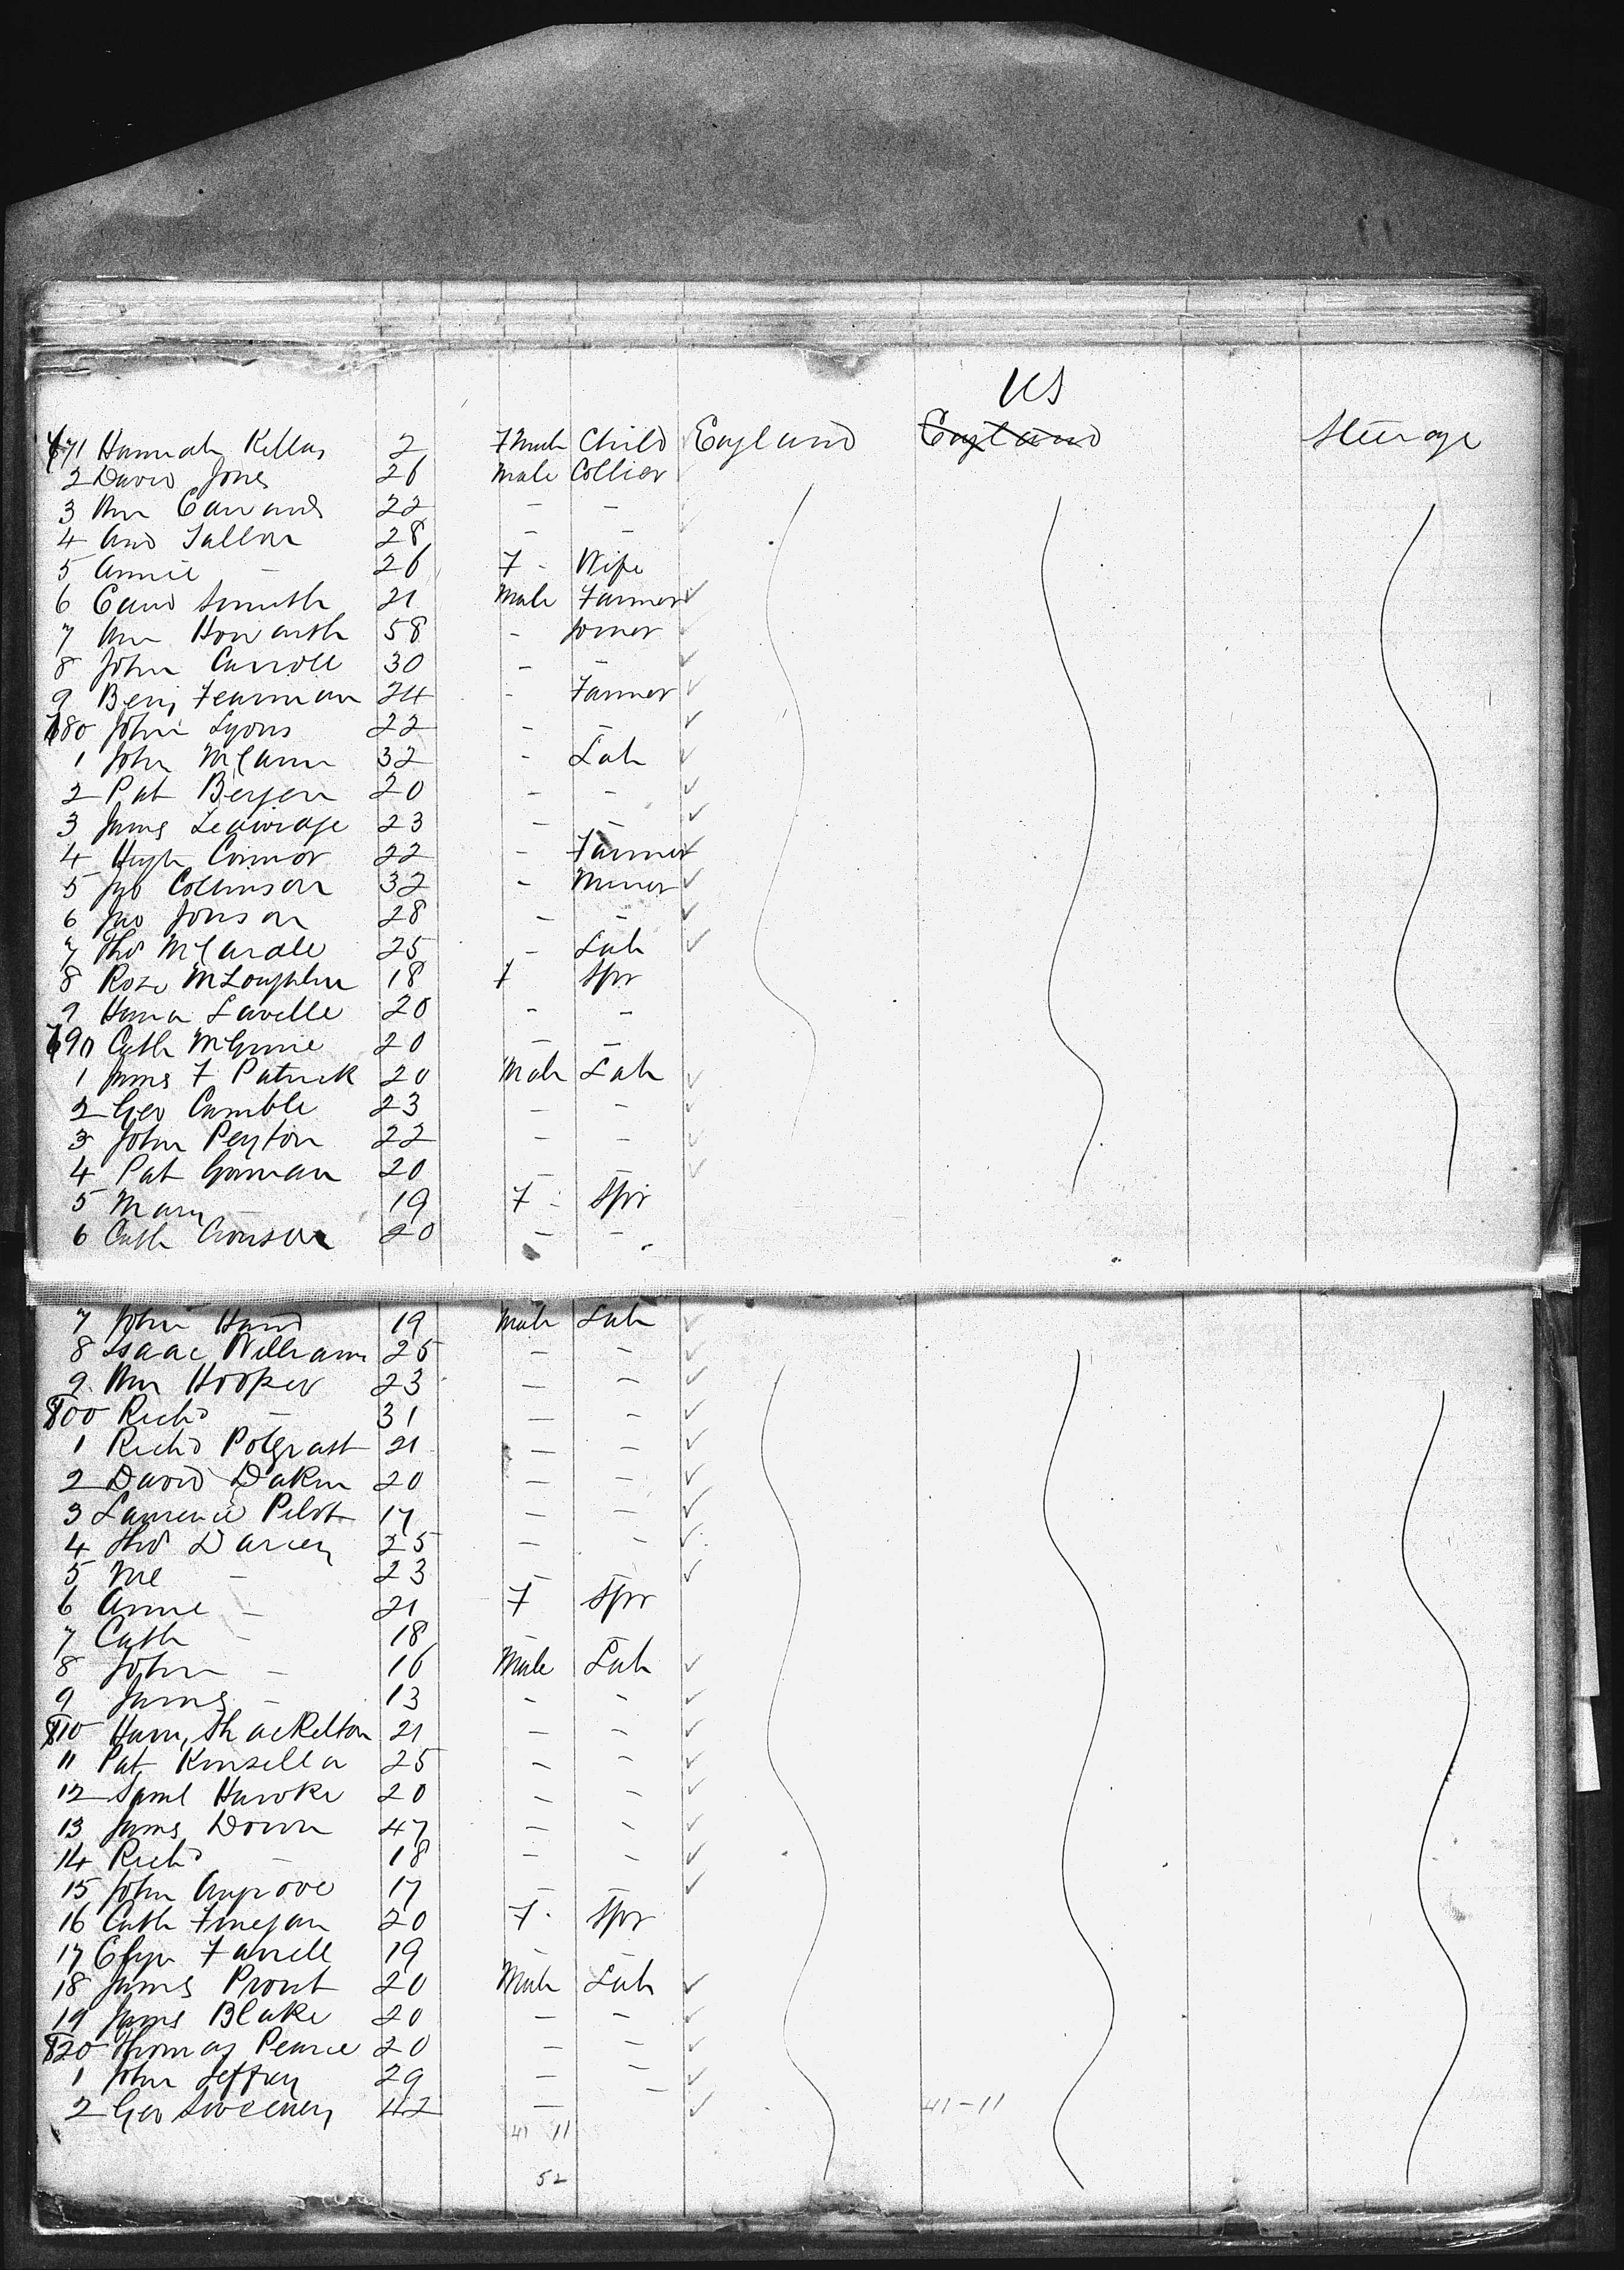 US
671 Hannah Kellas 2 Female Child England England Steerage
2 David Jones 26 Male Collier
3 Wm Edwards 22 - -
4 And Tallon 28 - -
5 Annie - 26 F - Wife
6 Edwd Smith 21 Male Farmer
7 Wm Howarth 58 - Joiner
8 John Carroll 30 - -
9 Benj Fearman 24 - Farmer
680 John Lyons 22 - -
1 John McCann 32 - Lab
2 Pat Bergen 20 - -
3 James 23 - -
4 Hugh Connor 22 - Farmer
5 Jno Collinson 32 - Miner
6 Jno Jonson 28 - -
7 Thos McCardle 25 - Lab
8 Rose McLoughlin 18 F Spr
9 Hana Lavelle 20 - -
690 Cath McGuire 20 - -
1 James F Patrick 20 Male Lab
2 Geo Camble 23 - -
3 John Peyton 22 - -
4 Pat Gorman 20 - -
5 Mary - 19 F - Spr
6 Cath Cronson 20 - -
7 John Hand 19 Male Lab
8 Isaac Williams 25 - -
9 Wm Hooper 23 - -
800 Richd - 31 - -
1 Richd Polgrast 21 - -
2 David Dakin 20 - -
3 Laurence Pilot 17 - -
4 Thos Darcey 25 - -
5 Me - 23 - -
6 Annie - 21 F Spr
7 Cath - 18 - -
8 John - 16 Male Lab
9 James - 13 - -
810 Harry Shackelton 21 - -
11 Pat Kinsella 25 - -
12 Saml Hawke 20 - -
13 James Down 47 - -
14 Richd - 18 - -
15 John Angrove 17 - -
16 Cath Finegan 20 F - Spr
17 Farrell 19 - -
18 James Prout 20 Male Lab
19 James Blake 20 - -
820 Thomas Pearce 20 - -
1 John Jeffrey 29 - -
2 Geo Sweeney 42 - 41-11
41 11
52